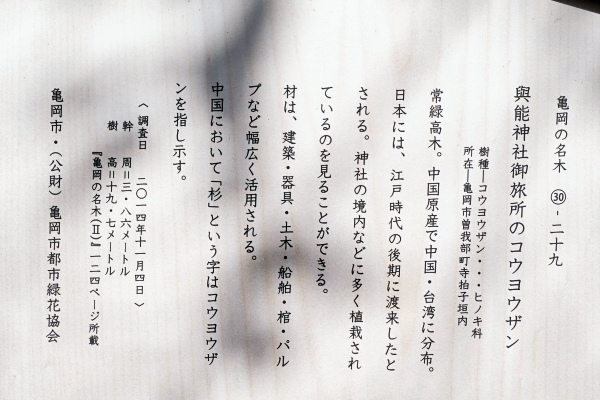 亀岡の名木 ㉚-二十九
與能神社御旅所のコウヨウザン
樹種―コウヨウザン・・・ヒノキ科
所在―亀岡市曽我部町寺拍子垣内
常緑高木。中国原産で中国・台湾に分布。
日本には、江戸時代の後期に渡来したと
される。神社の境内などに多く植栽され
ているのを見ることができる。
材は、建築・器具・土木・船舶・棺・パル
プなど幅広く活用される。
中国において「杉」という字はコウヨウザ
ンを指し示す。
〈調査日 二〇一四年十一月四日〉
幹 周=三・八六メートル
樹 高=十九・七メートル
『亀岡の名木(Ⅱ)』一二四ページ所載
亀岡市・(公財)亀岡市都市緑花協会